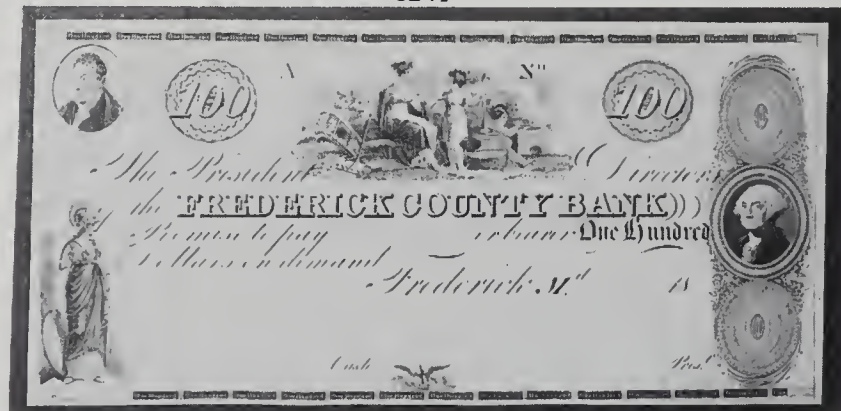 100 A No 100
The President & Directors
of the FREDERICK COUNTY BANK
Promise to pay or bearer One Hundred
Dollars on demand
Frederick Md 18
Cash Pres.